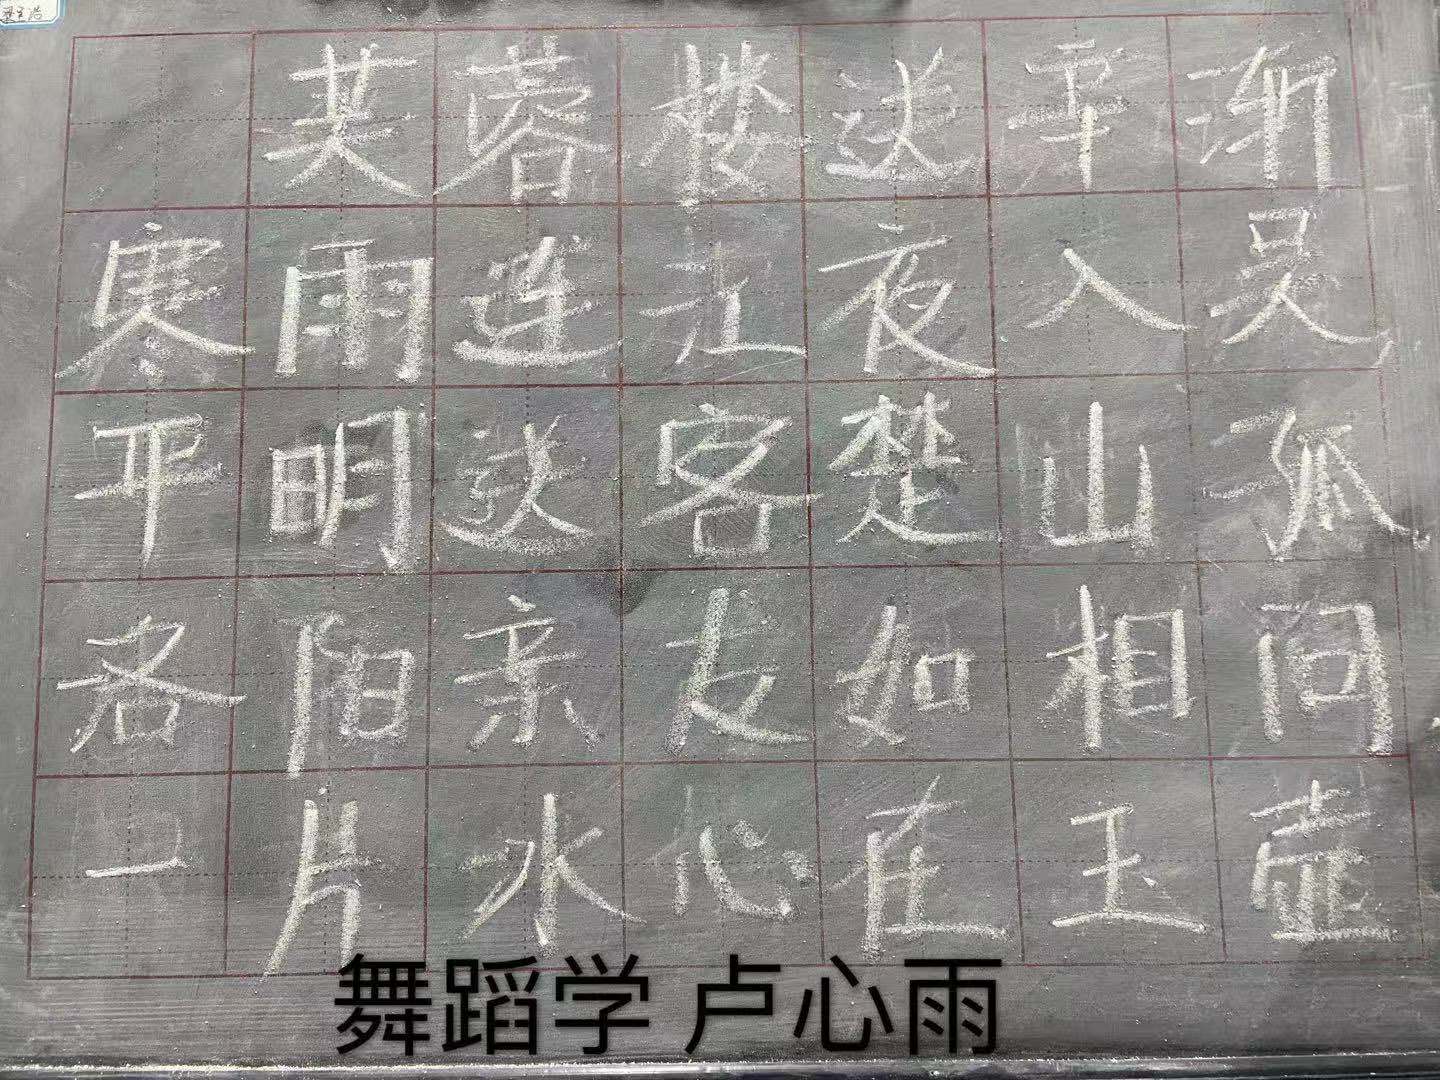 芙蓉楼送辛渐
寒雨连江夜入吴
平明送客楚山孤
洛阳亲友如相问
一片冰心在玉壶
舞蹈学 卢心雨